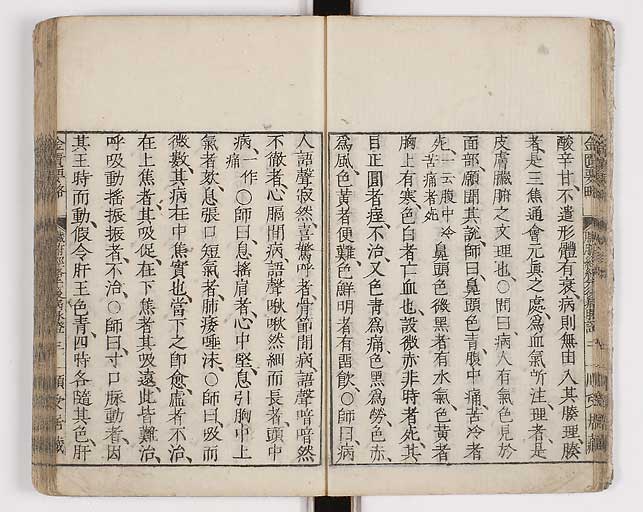 酸辛甘、不遣形體有衰、病則無由入其腠理、腠
者、是三焦通會元眞之處、爲血氣所注、理者、是
皮膚臟腑之文理也〇問曰、病人有氣色見於
面部、願聞其說、師曰、鼻頭色青、腹中痛、苦冷者
死、一云腹中冷苦痛者死 鼻頭色微黑者、有水氣、色黃者、
胸上有寒、色白者、亡血也、設微赤非時者死、其
目正圓者痓、不治、又色青爲痛、色黑爲勞、色赤
爲風、色黃者便難、色鮮明者有畱飮〇師曰、病
人語聲寂然、喜驚呼者、骨節間病、語聲喑喑然
不徹者、心膈間病、語聲啾啾然細而長者、頭中
病、一作痛 〇師曰、息搖肩者、心中堅、息引胸中上
氣者欬、息張口短氣者、肺痿唾沫〇師曰、吸而
微數、其病在中焦、實也、當下之卽愈、虛者不治、
在上焦者、其吸促、在下焦者、其吸遠、此皆難治、
呼吸動搖振振者、不治〇師曰、寸口脉動者、因
其王時而動、假令肝王色青、四時各隨其色、肝
金匱要略
三